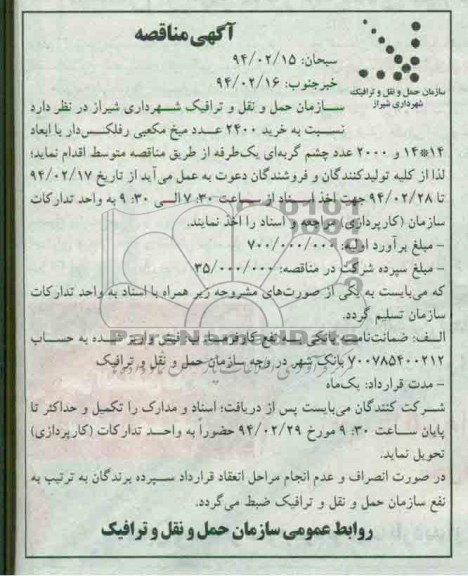 آگهی مناقصه
سبحان: ۹۴/۰۲/۱۵
خبرجنوب: ۹۴/۰۲/۱۶
سازمان حمل و نقل و ترافیک
شهرداری شیراز
سـازمان حمل و نقل و ترافیک شـهرداری شیراز در نظر دارد
نسـبت به خرید ۲۴۰۰ عـدد میخ مکعبی رفلکس‌دار با ابعاد
۱۴*۱۴ و ۲۰۰۰ عدد چشم گربه‌ای یک‌طرفه از طریق مناقصه متوسط اقدام نماید؛
لذا از کلیه تولیدکنندگان و فروشندگان دعوت به عمل می‌آید از تاریخ ۹۴/۰۲/۱۷
تا ۹۴/۰۲/۲۸ جهت اخذ اسـناد از سـاعت ۷:۳۰ الـی ۹:۳۰ به واحد تدارکات
سازمان (کارپردازی) مراجعه و اسناد را اخذ نمایند.
– مبلغ برآورد اولیه: ۷۰۰/۰۰۰/۰۰۰
– مبلغ سپرده شرکت در مناقصه: ۳۵/۰۰۰/۰۰۰
که می‌بایست به یکی از صورت‌های مشروحه زیر همراه با اسناد به واحد تدارکات
سازمان تسلیم گردد.
الـف: ضمانت‌نامـه بانکی بـه نفع کارفرمـا، ب: فیش واریز شـده به حساب
۷۰۰۷۸۵۴۰۰۲۱۲ بانک شهر در وجه سازمان حمل و نقل و ترافیک
– مدت قرارداد: یک‌ماه
شـرکت کنندگان می‌بایست پس از دریافت؛ اسناد و مدارک را تکمیل و حداکثر تا
پایان سـاعت ۹:۳۰ مورخ ۹۴/۰۲/۲۹ حضوراً به واحـد تدارکات (کارپردازی)
تحویل نماید.
در صورت انصراف و عدم انجام مراحل انعقاد قرارداد سـپرده برندگان به ترتیب به
نفع سازمان حمل و نقل و ترافیک ضبط می‌گردد.
روابط عمومی سازمان حمل و نقل و ترافیک